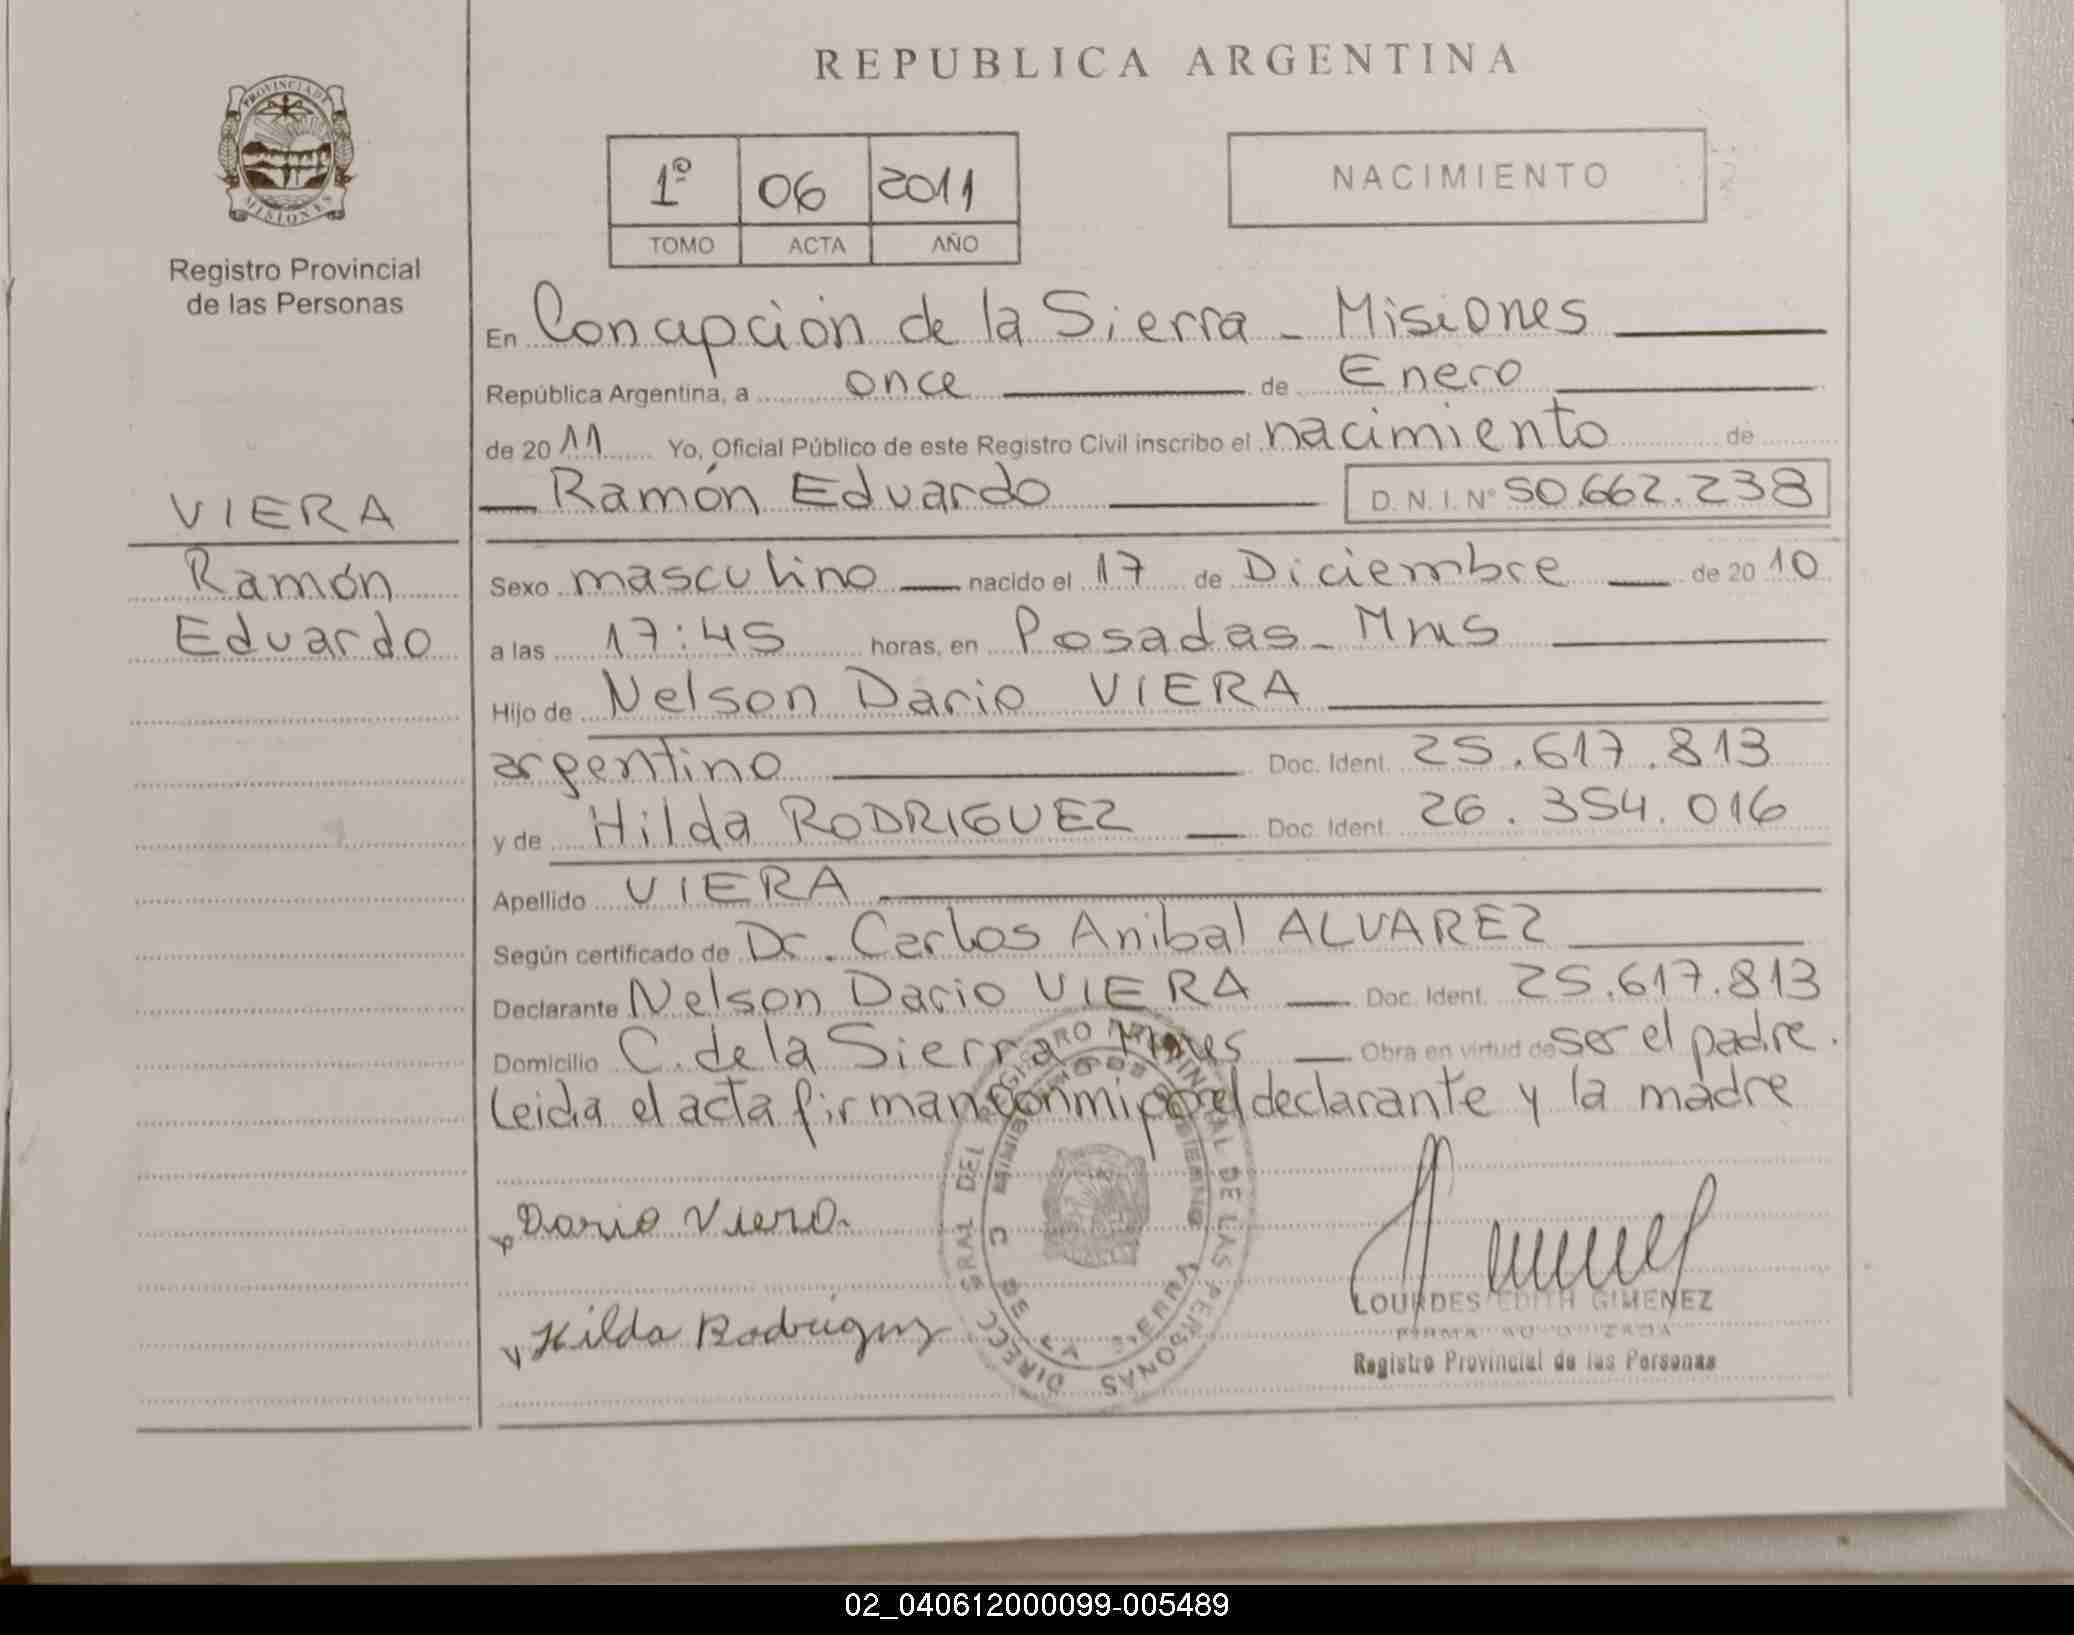 REPUBLICA ARGENTINA
PROVINCIA DE
MISIONES
Registro Provincial
de las Personas
1º 06 2011
TOMO ACTA AÑO
NACIMIENTO
En Concepción de la Sierra - Misiones
República Argentina, a once de Enero
de 2011 Yo, Oficial Público de este Registro Civil inscribo el nacimiento de
Ramón Eduardo D.N.I. Nº 50.662.238
VIERA
Ramón
Eduardo
Sexo masculino nacido el 17 de Diciembre de 2010
a las 17:45 horas, en Posadas - Mnes
Hijo de Nelson Dario VIERA
argentino Doc. Ident. 25.617.813
y de Hilda RODRIGUEZ Doc. Ident. 26.354.016
Apellido VIERA
Según certificado de Dr. Carlos Anibal ALVAREZ
Declarante Nelson Dario VIERA Doc. Ident. 25.617.813
Domicilio C. de la Sierra Mnes Obra en virtud de ser el padre.
Leida el acta firman conmigo el declarante y la madre
Dario Viera.
Hilda Rodriguez
DE LAS PERSONAS
LOURDES EDITH GIMENEZ
Registro Provincial de las Personas
02_040612000099-005489